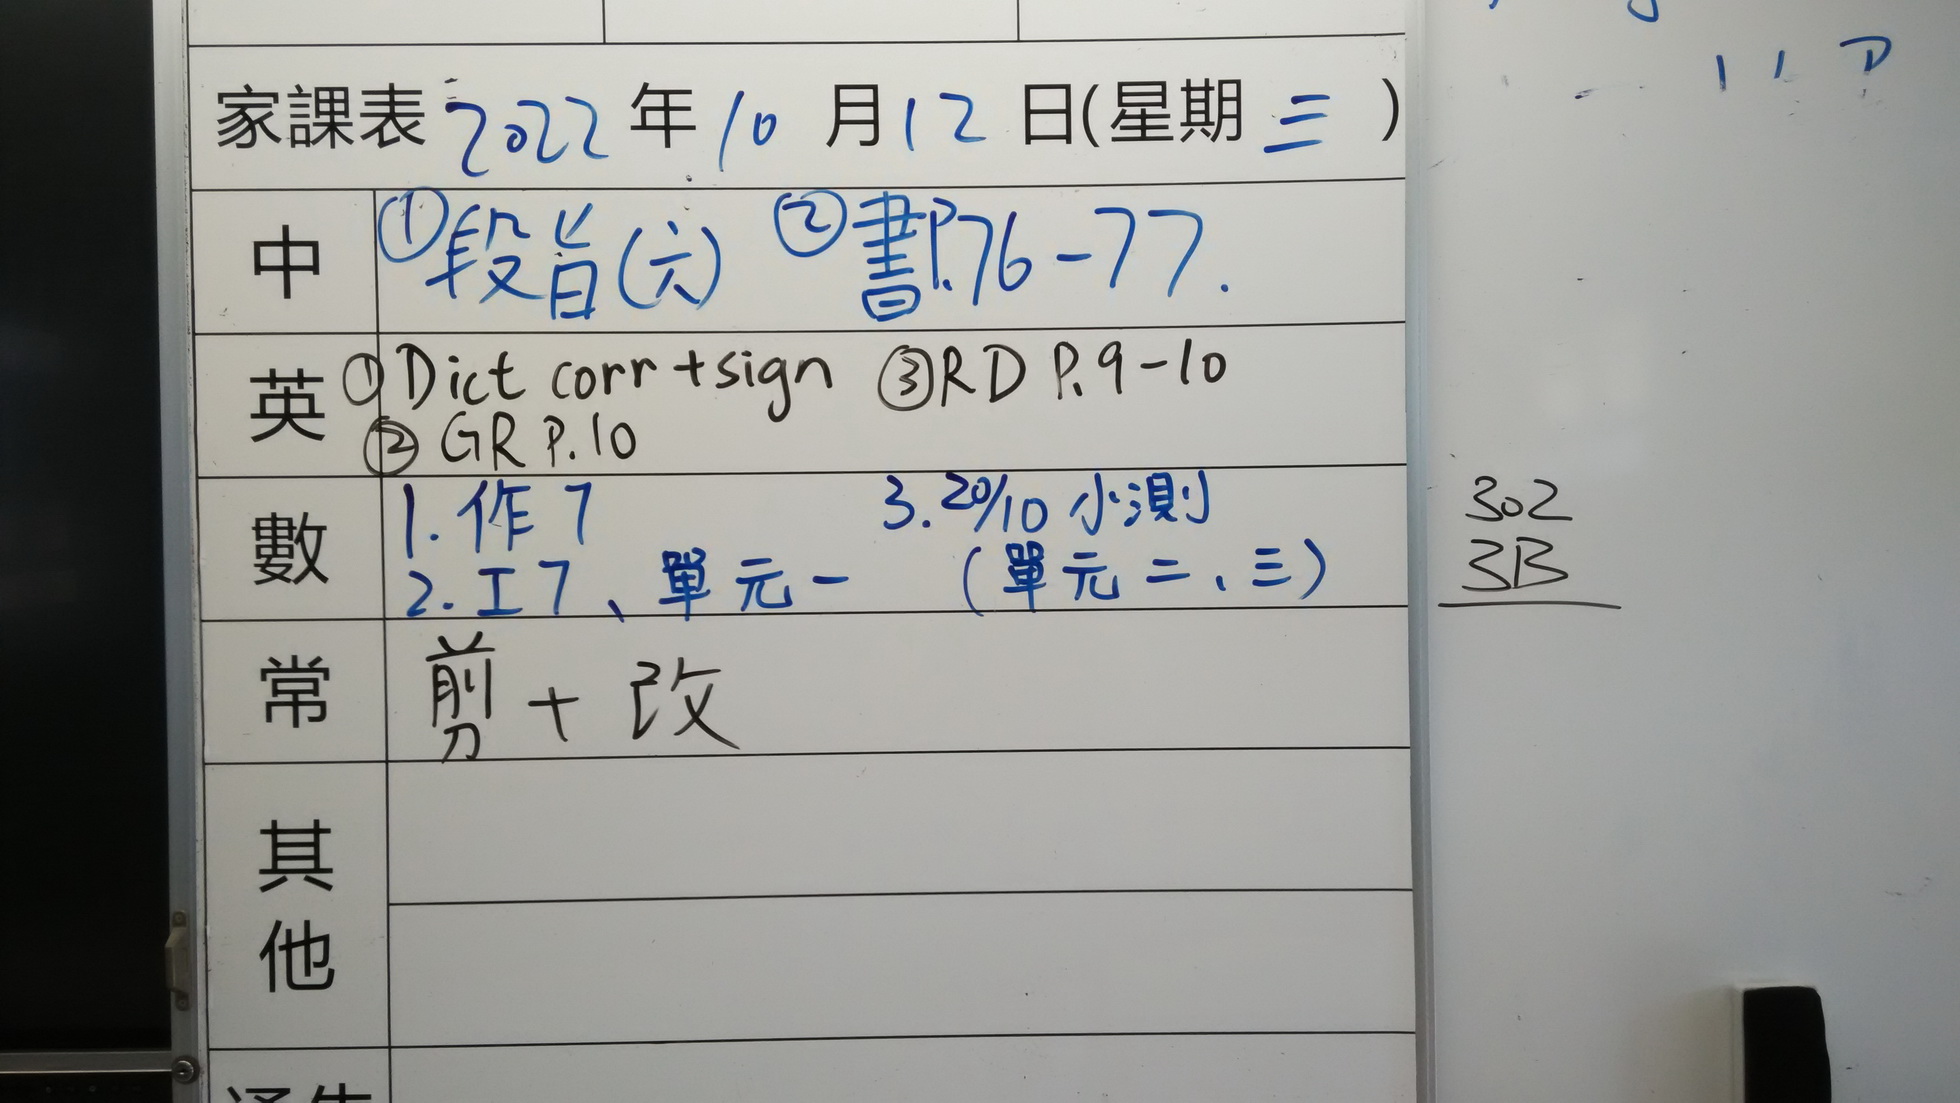 家課表 2022 年 10 月 12 日(星期 三 )
中 ①段旨(六) ②書P.76-77.
英 ①Dict corr+sign ③RD P.9-10
②GR P.10
數 1.作7 3.20/10 小測
2.工7、單元一 (單元二、三)
常 剪+改
其他
302
3B